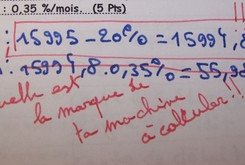 : 0,35 %/mois. (5 Pts)
: 15995 - 20% = 15994,8
: 15994,8 . 0,35% = 55,98
quelle est
la marque de
ta machine
à calculer !!